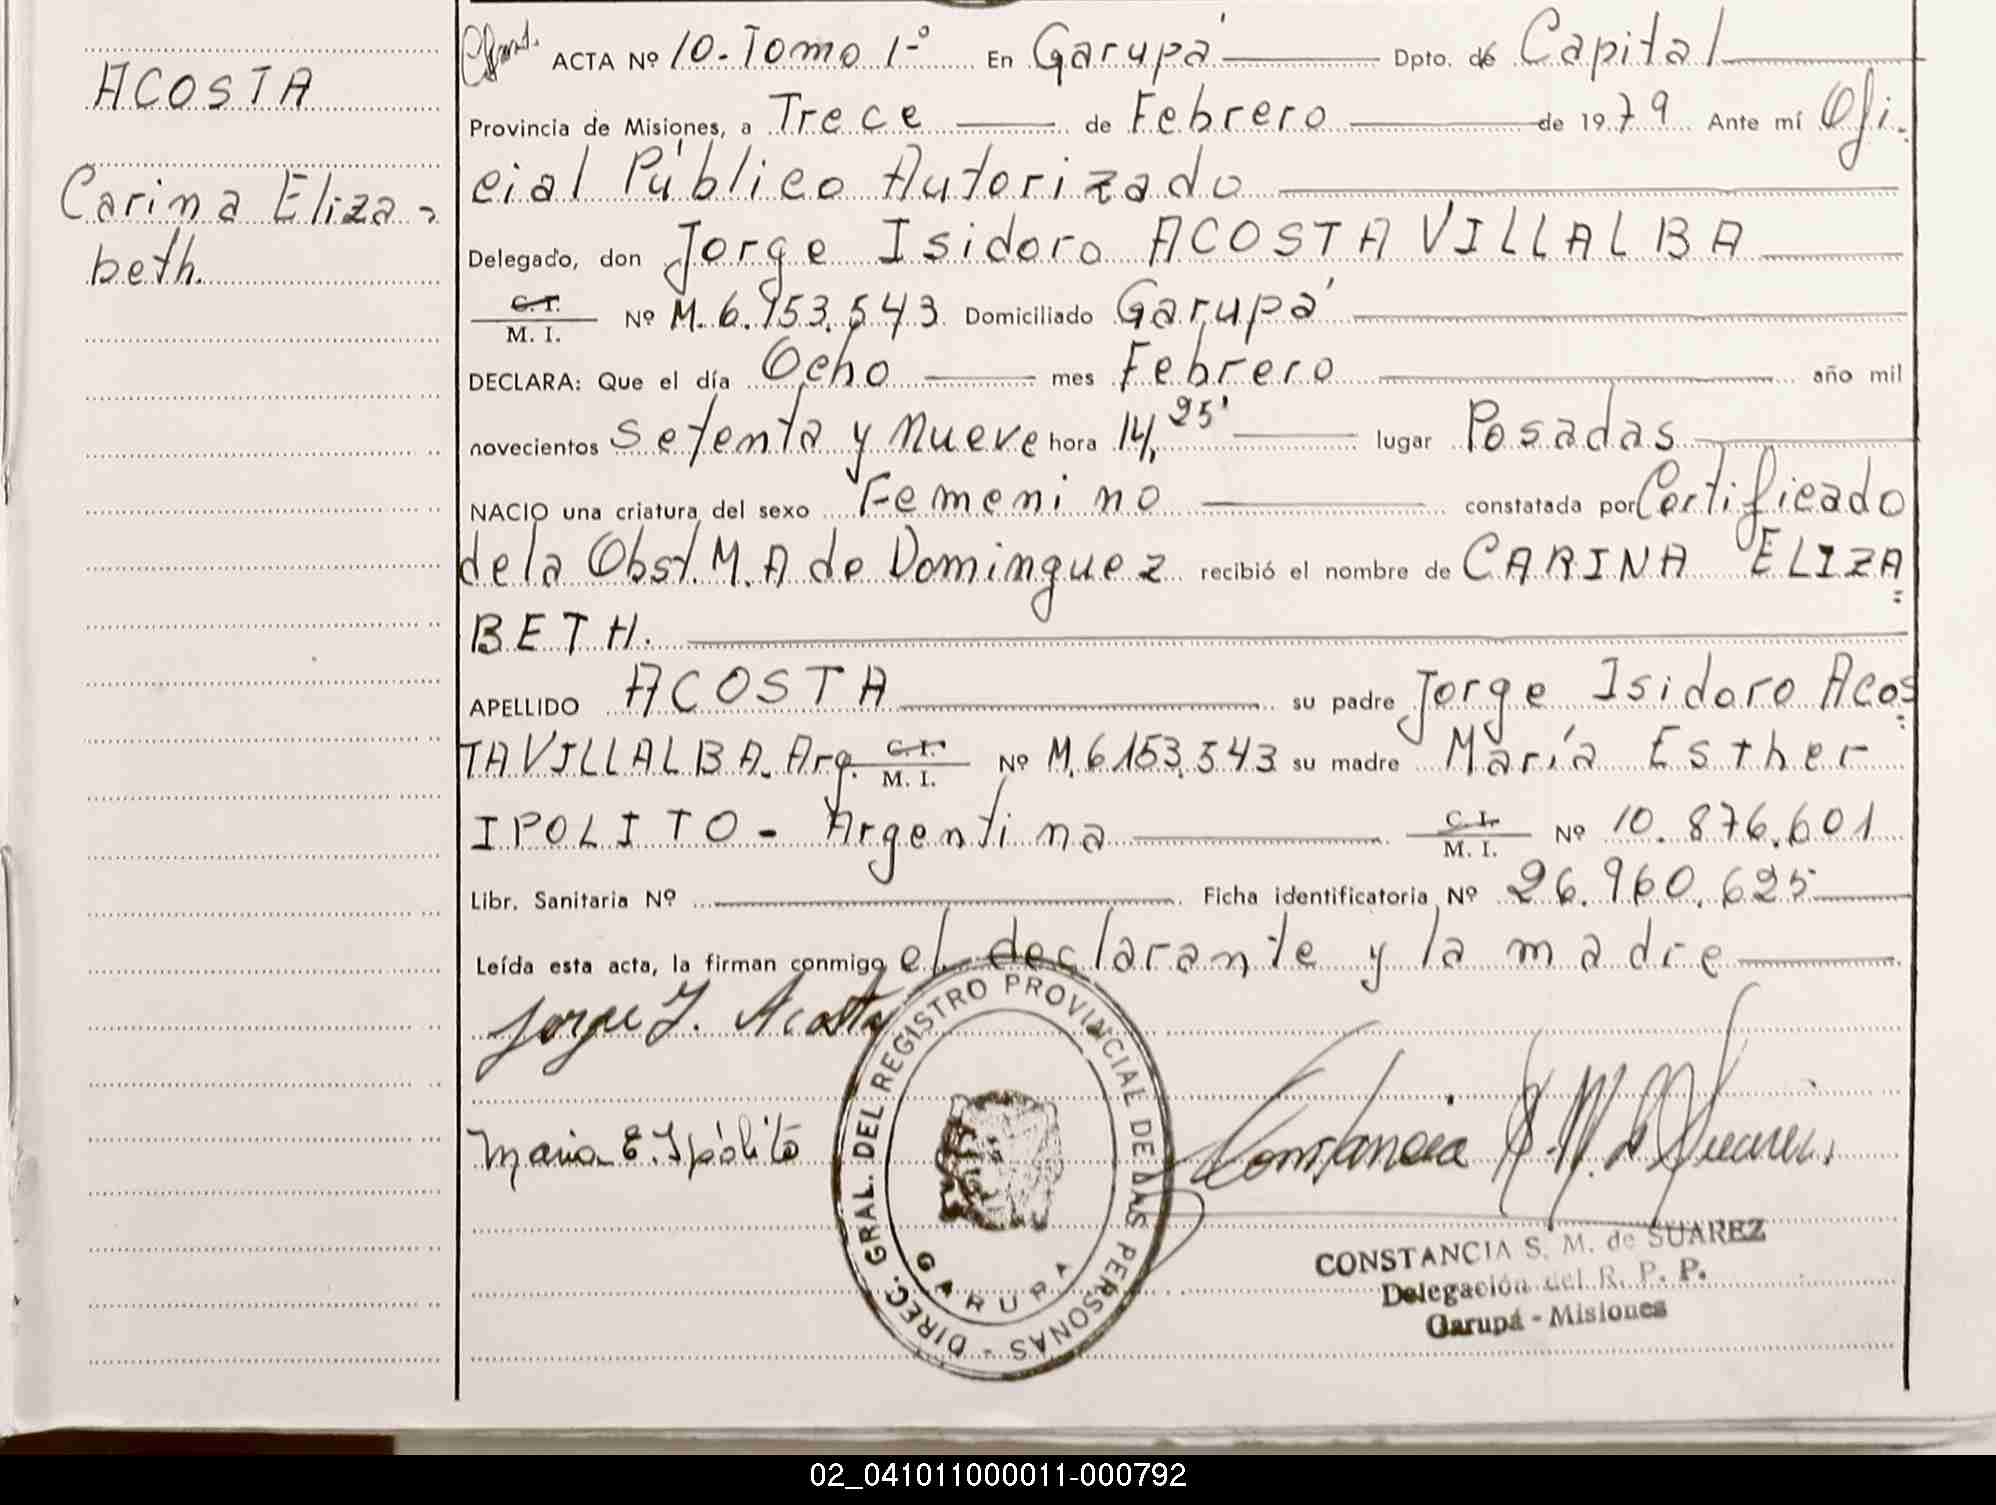 ACOSTA
Carina Eliza-
beth.
ACTA Nº 10-Tomo 1º En Garupá Dpto. de Capital
Provincia de Misiones, a Trece de Febrero de 1979 Ante mí Ofi-
cial Público Autorizado
Delegado, don Jorge Isidoro ACOSTA VILLALBA
C.I.
M. I. Nº M. 6.153.543 Domiciliado Garupá
DECLARA: Que el día Ocho mes Febrero año mil
novecientos setenta y nueve hora 14,25' lugar Posadas
NACIO una criatura del sexo Femenino constatada por Certificado
de la Obst. M. A de Dominguez recibió el nombre de CARINA ELIZA=
BETH.
APELLIDO ACOSTA su padre Jorge Isidoro Acos=
TA VILLALBA. Arg. C.I. M. I. Nº M. 6.153.543 su madre María Esther
IPOLITO - Argentina C.I. M. I. Nº 10.876.601
Libr. Sanitaria Nº Ficha identificatoria Nº 26.960.625
Leída esta acta, la firman conmigo el declarante y la madre
Jorge I. Acosta
Maria E. Ipólito
Constancia S. M. de Suarez
DIREC. GRAL. DEL REGISTRO PROVINCIAL DE LAS PERSONAS -
GARUPA
CONSTANCIA S. M. de SUAREZ
Delegación del R. P. P.
Garupá - Misiones
02_041011000011-000792